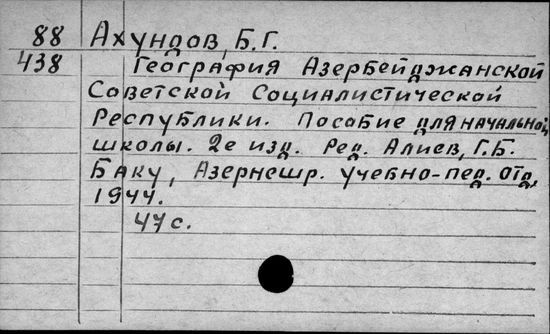 88 Ахундов, Б.Г.
438 География Азербейджанской
Советской Социалистической
Республики. Пособие для начальной
школы. 2е изд. Ред. Алиев, Г.Б.
Баку, Азернешр. учебно-пед. отд,
1944.
47 с.